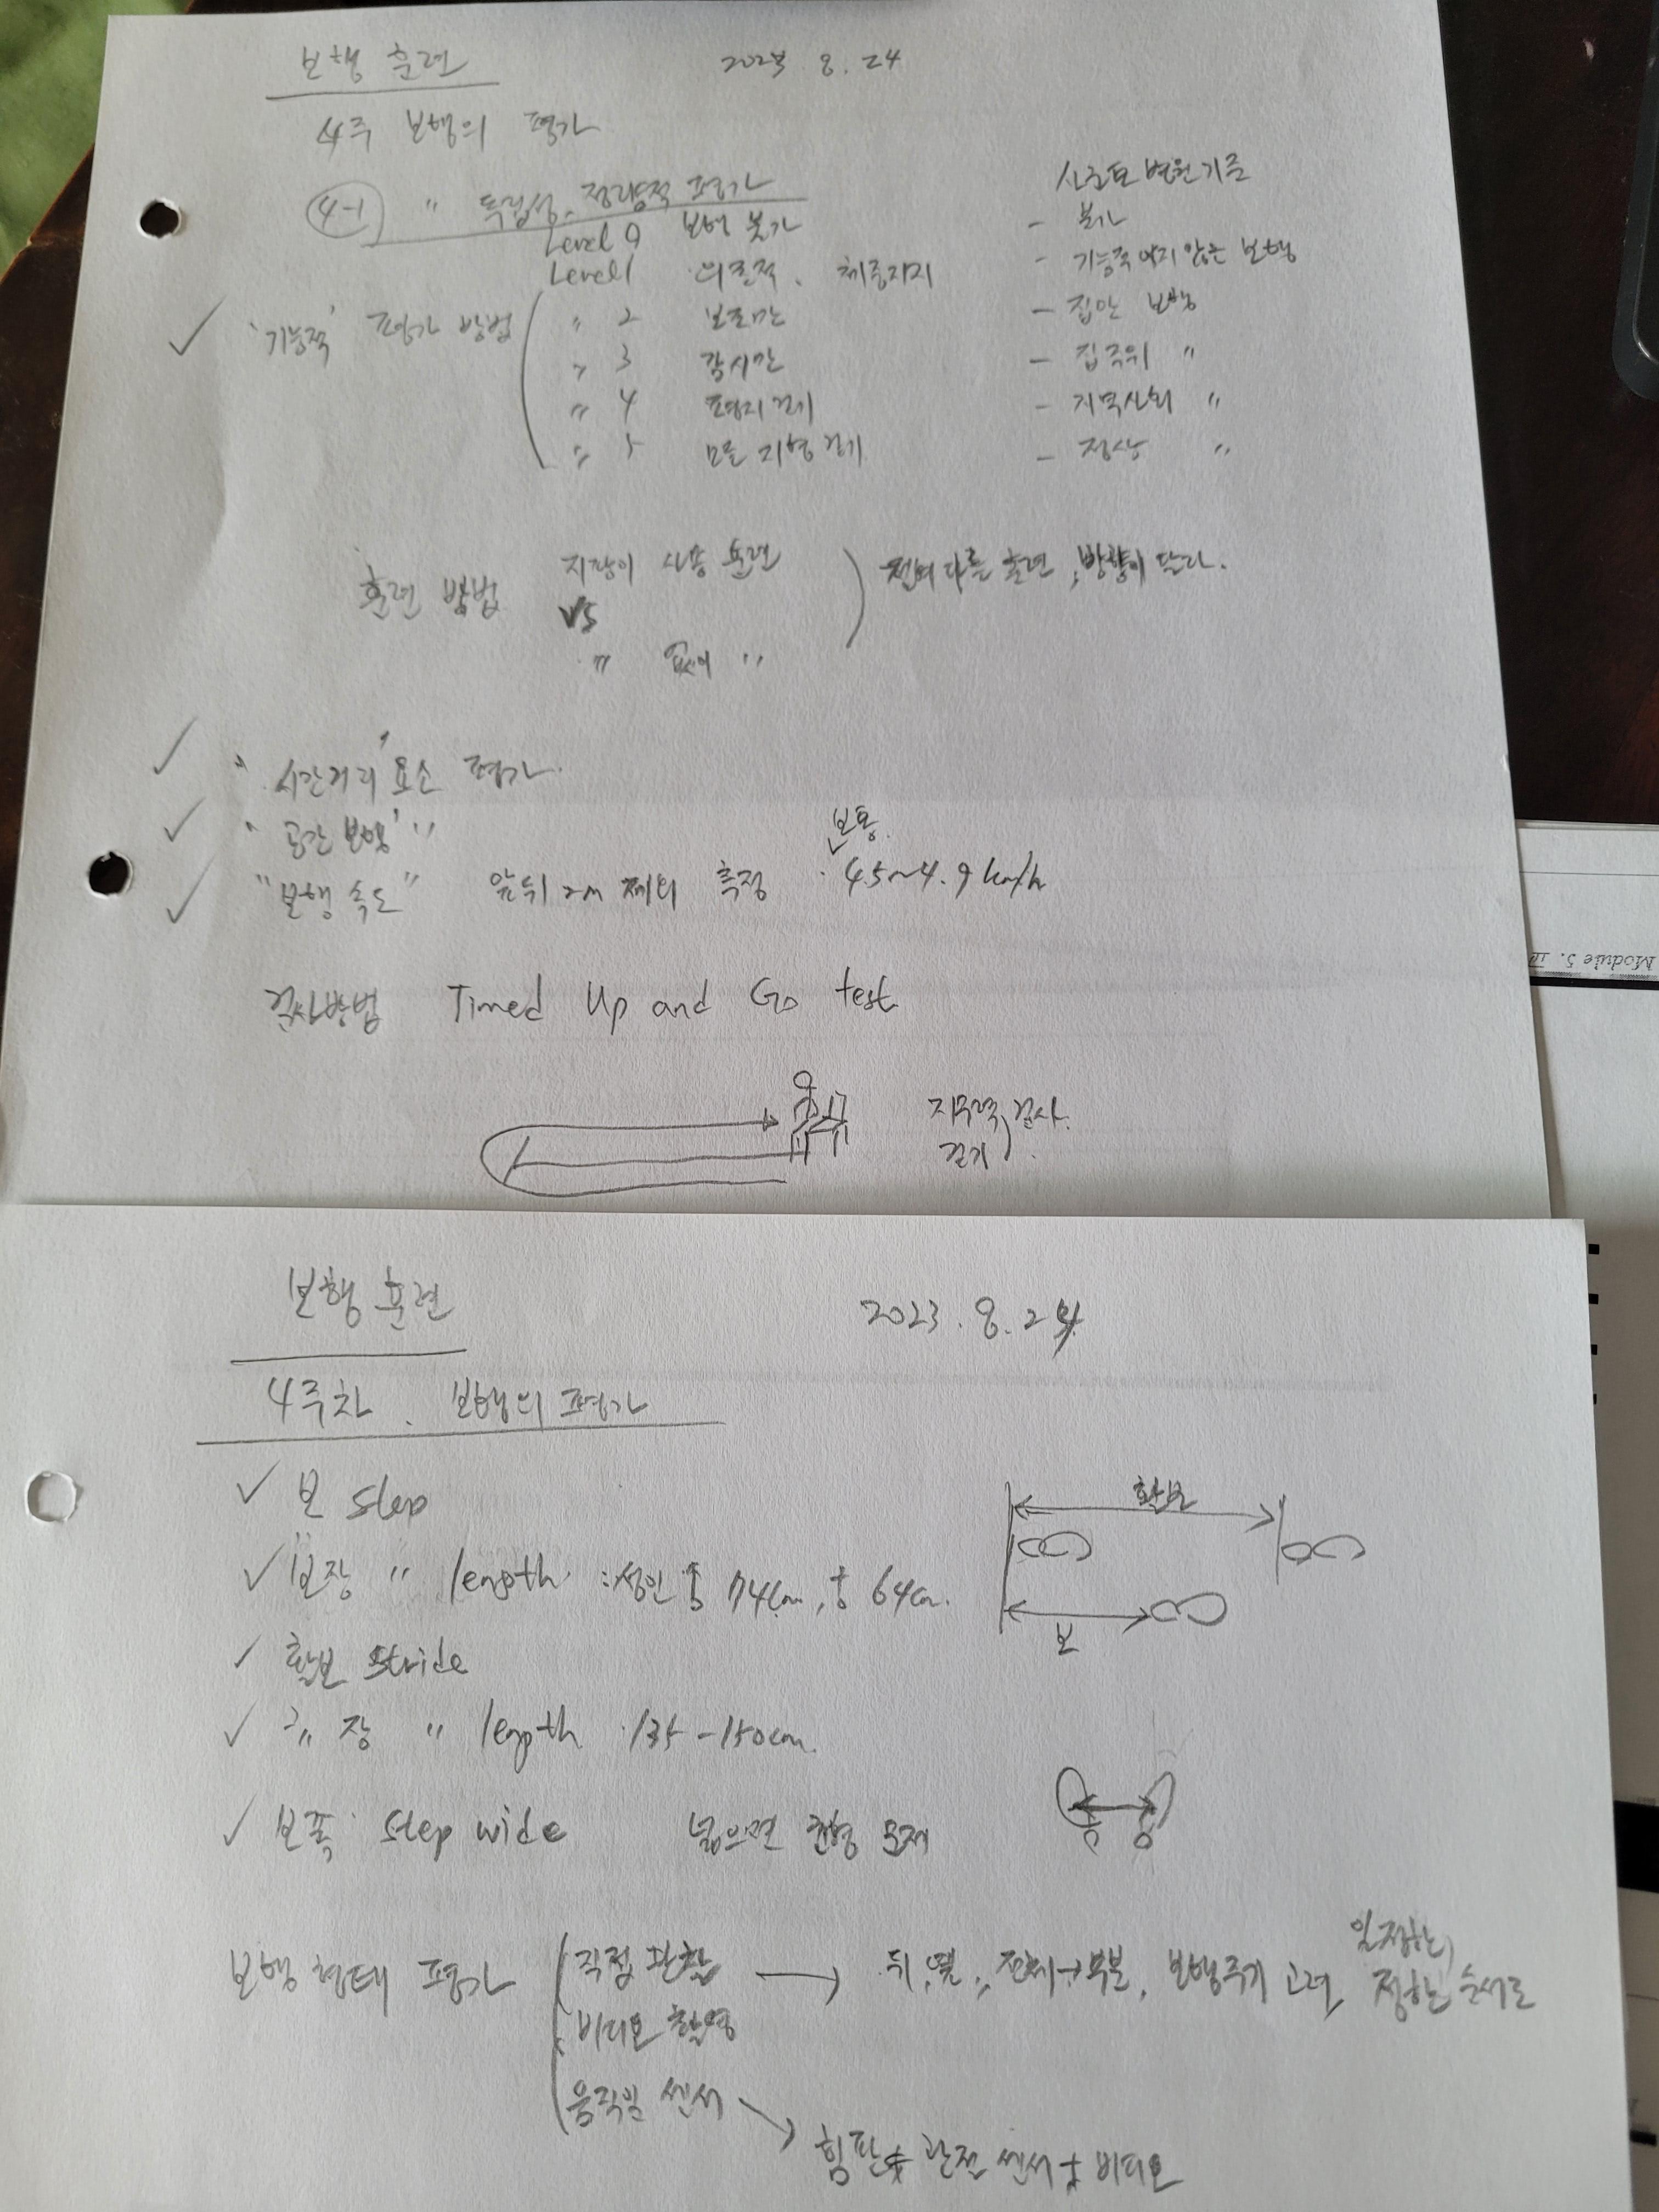 보행 훈련 2023. 8. 24
4주 보행의 평가
4-1 " 독립성, 정량적 평가 사군토 병원기준
Level 0 보행 불가 - 불가
Level 1 의존적, 체중지지 - 기능적이지 않은 보행
✓ '기능적' 평가 방법 " 2 보조만 - 집안 보행
" 3 감시만 - 집주위 "
" 4 평지걷기 - 지역사회 "
" 5 모든 지형 걷기 - 정상 "
훈련 방법 지팡이 사용 훈련
vs
" 없이 "
전혀 다른 훈련, 방향이 달라.
✓ " 시간거리' 요소 평가.
✓ ' 공간 보행' "
✓ "보행 속도" 앞뒤 2m 제외 측정 보통. 4.5~4.9 km/h
검사방법 Timed Up and Go test
지구력 검사.
걷기
보행 훈련 2023. 8. 24
4주차. 보행의 평가
✓ 보 step
✓ 보장 " length : 성인 ♂ 74cm, ♀ 64cm.
✓ 활보 stride
✓ " 장 " length 135-150cm.
✓ 보폭 step wide 넓으면 균형 문제
활보
보
보행 형태 평가 직접 관찰 → 뒤, 옆, 전체→부분, 보행주기 고려, 일정한 정한 순서로
비디오 촬영
움직임 센서
힘판 + 관절 센서 + 비디오
Module 5. III